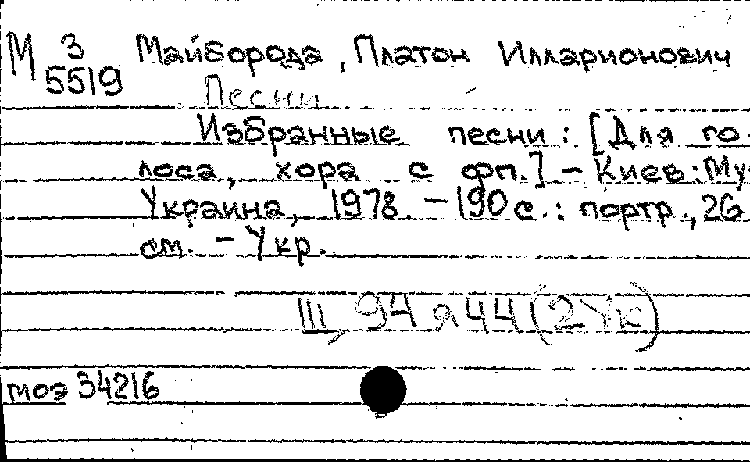 М 3 Майборода, Платон Илларионович
5519
Песни
Избранные песни: [Для го-
лоса, хора с фп.] – Киев: Му
Украина, 1978. – 190 с.: портр., 26
см. – Укр.
III, 94 я 44 (2Ук)
моэ 34216